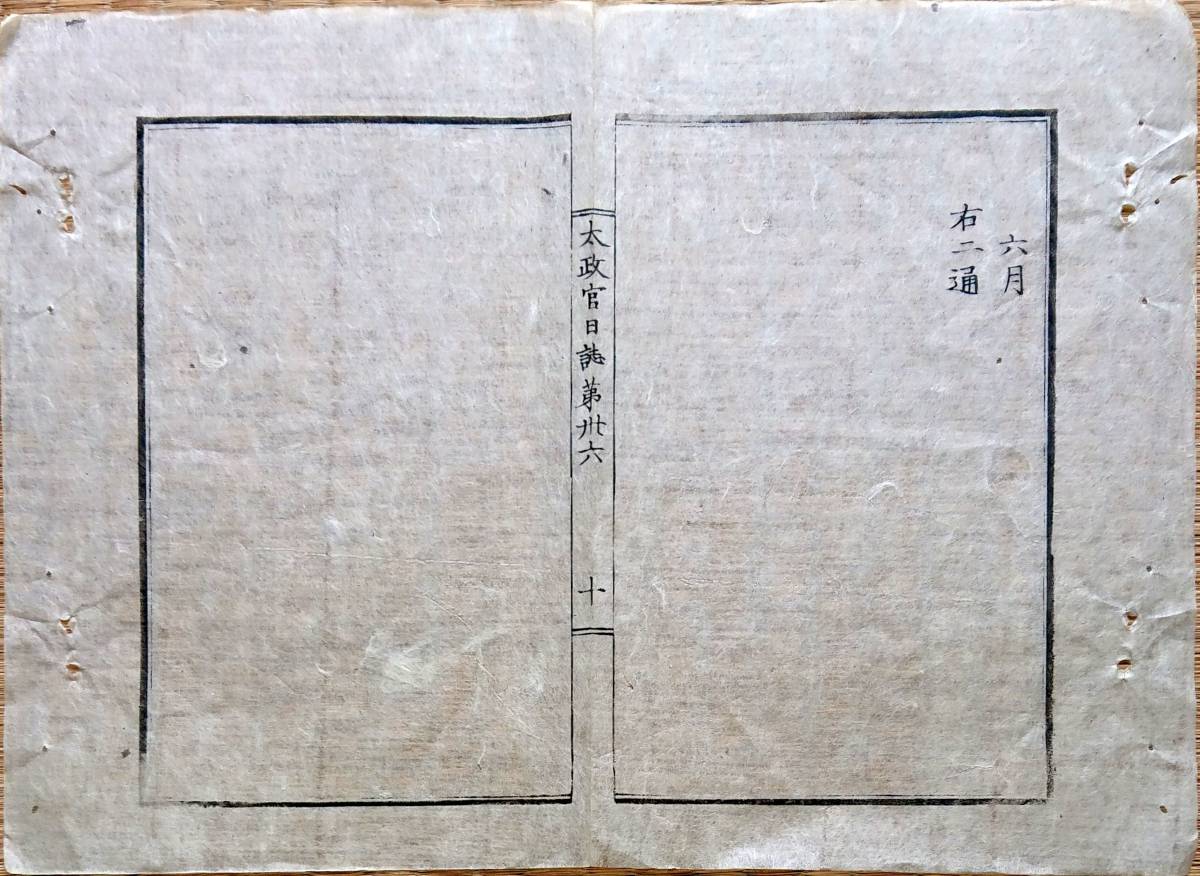 六月
右二通
太政官日誌第卅六
十